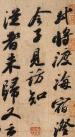 軾將渡海宿澄
令子見訪知
從者未歸又云